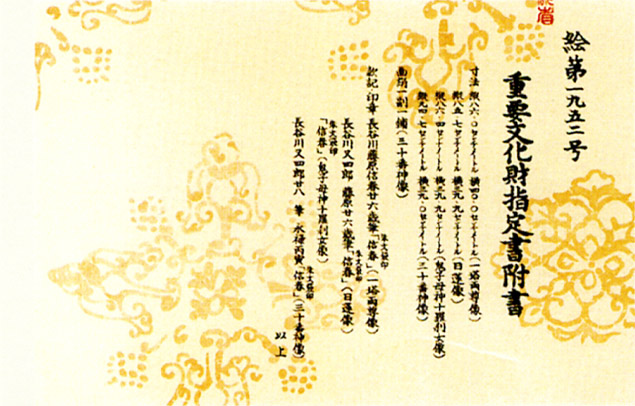 絵第一九五二号
重要文化財指定書附書
寸法 縦八六・〇センチメートル 横四〇・〇センチメートル(一塔両尊像)
縦八五・七センチメートル 横三九・九センチメートル(日蓮像)
縦八六・四センチメートル 横三九・九センチメートル(鬼子母神十羅刹女像)
縦九四・七センチメートル 横三九・〇センチメートル(三十番神像)
画絹一副一鋪(三十番神像)
款記・印章 長谷川藤原信春廿六歳筆「信春」朱文袋印(一塔両尊像)
長谷川又四郎 藤原廿六歳筆「信春」朱文袋印(日蓮像)
「信春」朱文袋印(鬼子母神十羅刹女像)
長谷川又四郎廿八 筆 永禄丙寅「信春」朱文袋印(三十番神像)
以上